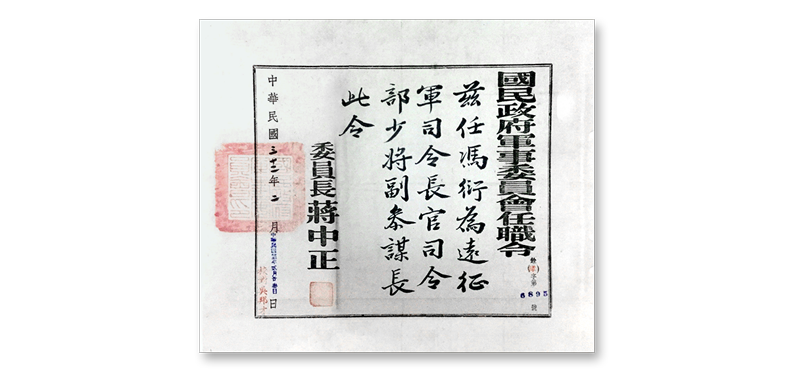 國民政府軍事委員會任職令
字第6895號
茲任馮衍為遠征
軍司令長官司令
部少將副參謀長
此令
委員長蔣中正
中華民國三十二年二月日